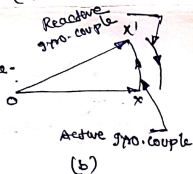 Reactive
gyro. couple
x'
o
x
Active gyro. couple
(b)